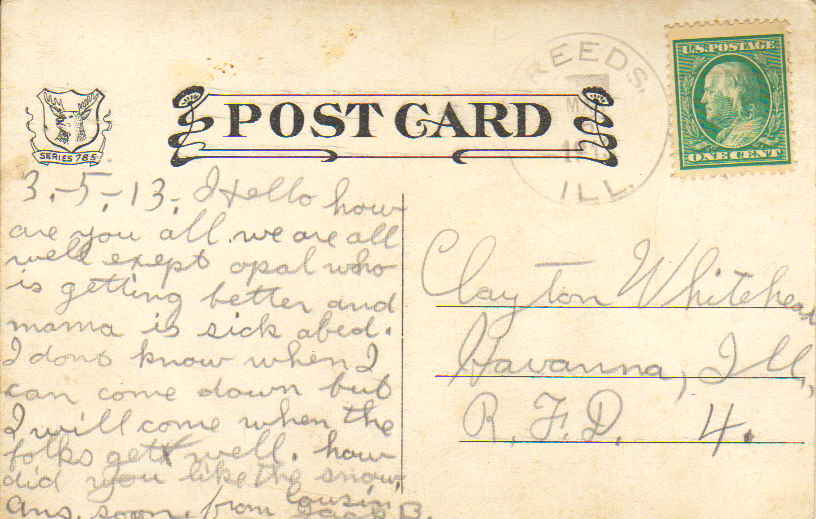 REEDS, ILL.
U.S. POSTAGE
ONE CENT
POST CARD
SERIES 785
3,-5,-13, Hello how
are you all. we are all
well exept opal who
is getting better and
mama is sick abed.
I dont know when I
can come down but
I will come when the
folks get well. how
did you like the snow.
Ans. soon. from Cousin
B.
Clayton Whitehead
Havanna, Ill,
R.F.D. 4.